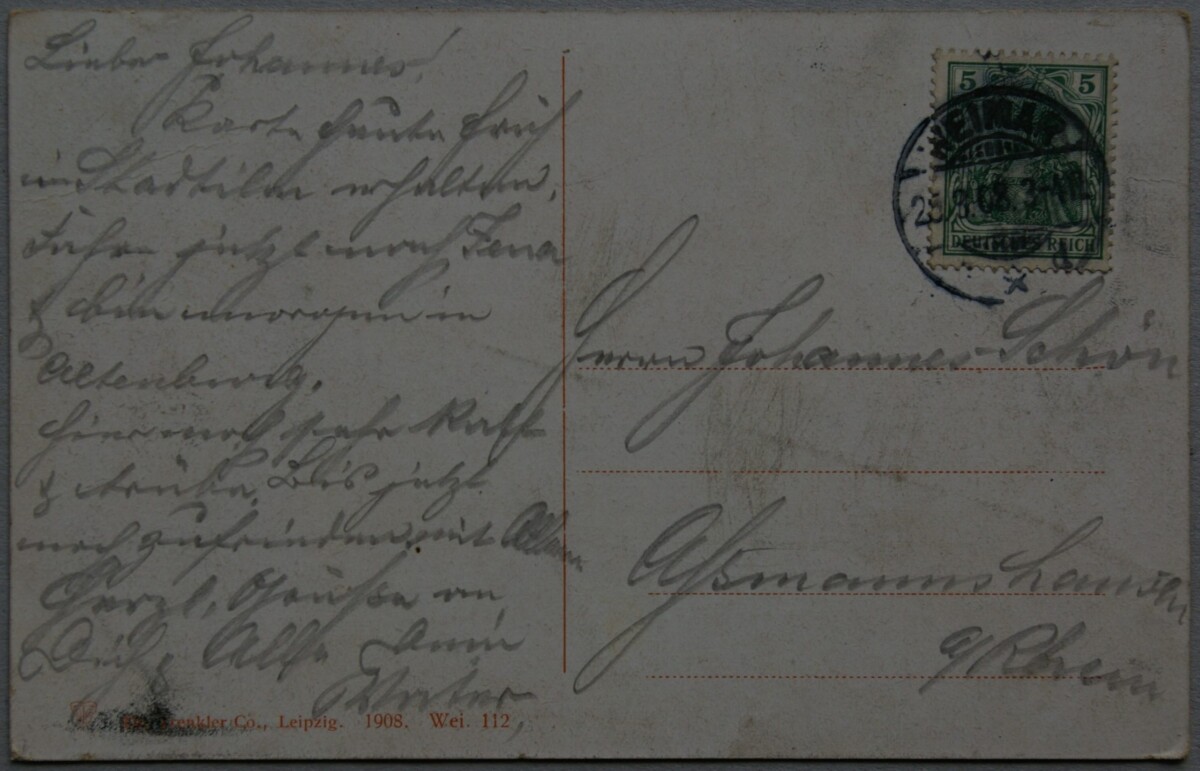 Lieber Johannes!
Karte heute früh
in Stadtilm erhalten.
Fahre jetzt nach Jena
& bin morgen in
Altenburg.
Hier noch sehr kalt
& trübe. Bis jetzt
noch zufrieden mit Allem
Herzl. Grüße an
Dich & Alle Dein
Vater
Co., Leipzig. 1908. Wei. 112
5 5
WEIMAR
DEUTSCHES REICH
Herrn Johannes Schön
Aßmannshausen
a/Rhein